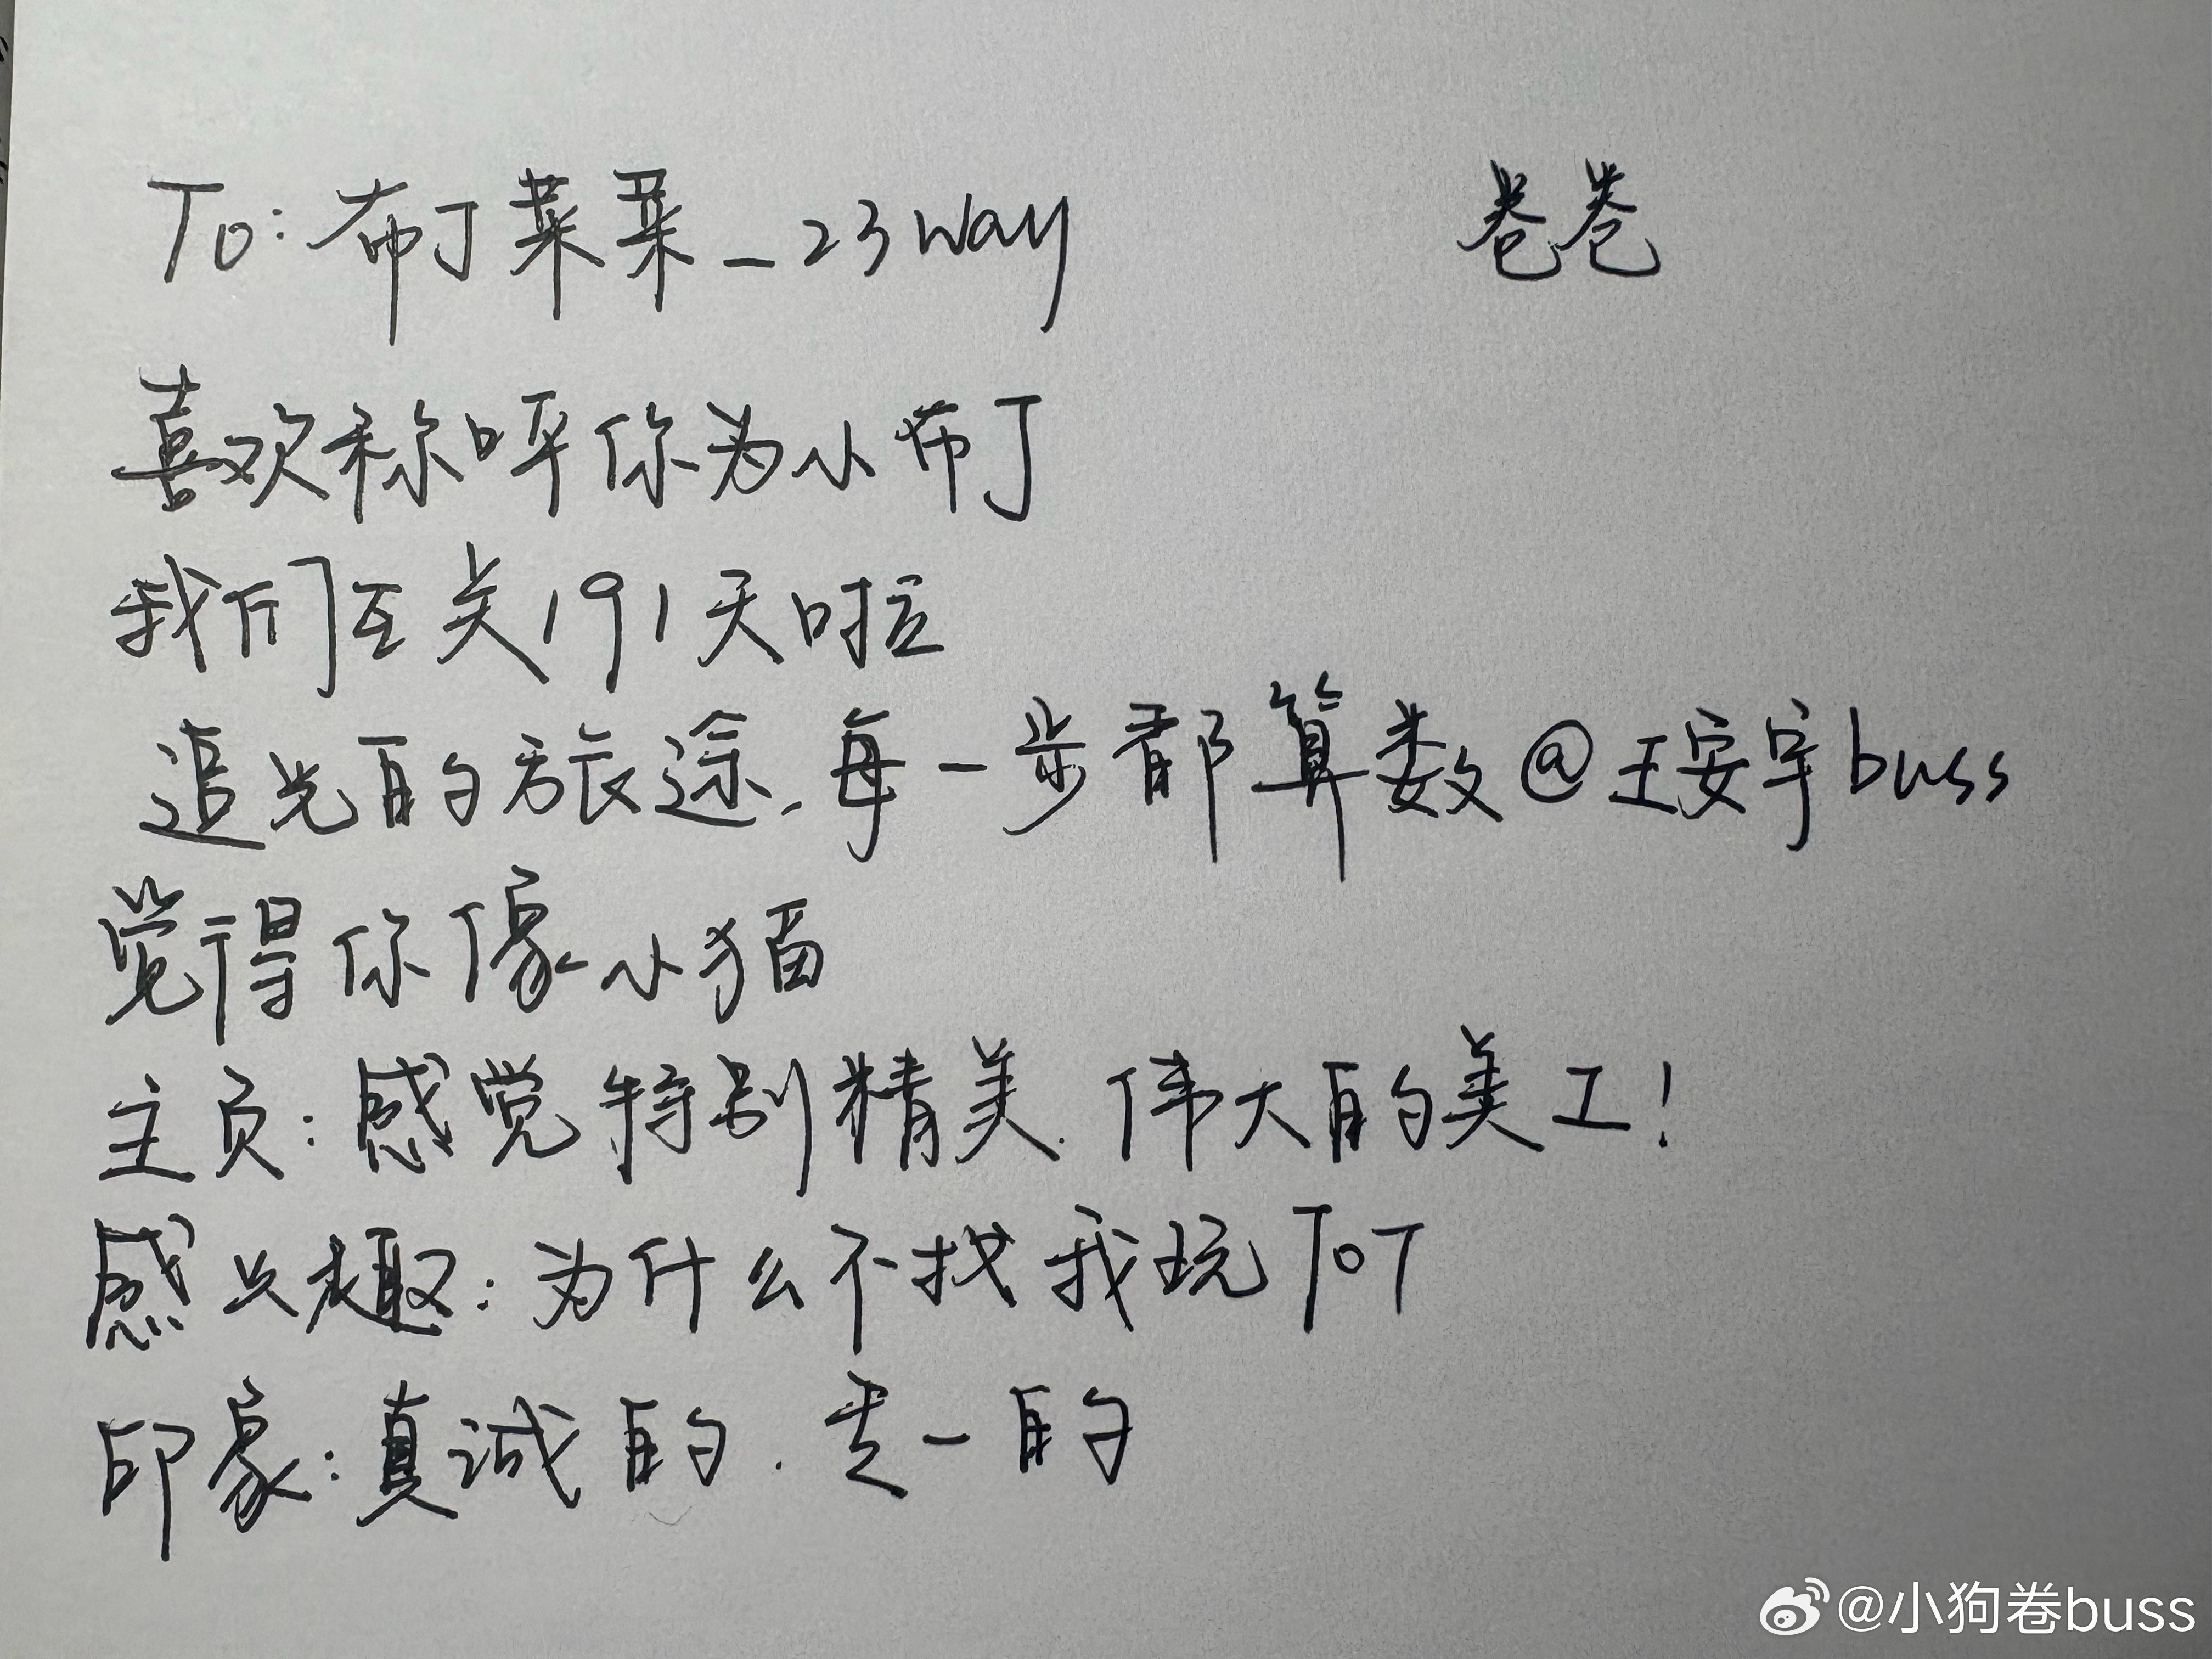 To: 布丁菜菜_23way 卷卷
喜欢称呼你为小布丁
我们互关191天啦
追光的旅途.每一步都算数@王安宇buss
觉得你像小猫
主页:感觉特别精美.伟大的美工!
感兴趣:为什么不找我玩ToT
印象:真诚的.专一的
@小狗卷buss